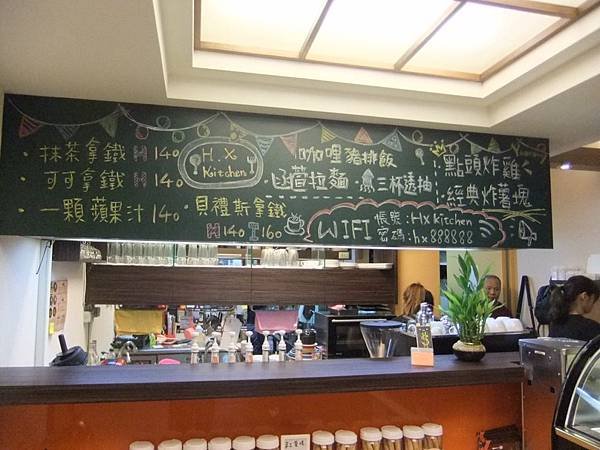 抹茶拿鐵 H 140
可可拿鐵 H 140
一顆蘋果汁 140
H.X
Kitchen
貝禮斯拿鐵
H 140 I 160
咖哩豬排飯
拉麵 三杯透抽
WIFI
帳號:Hx kitchen
密碼:hx888888
點頭炸雞
經典炸薯塊